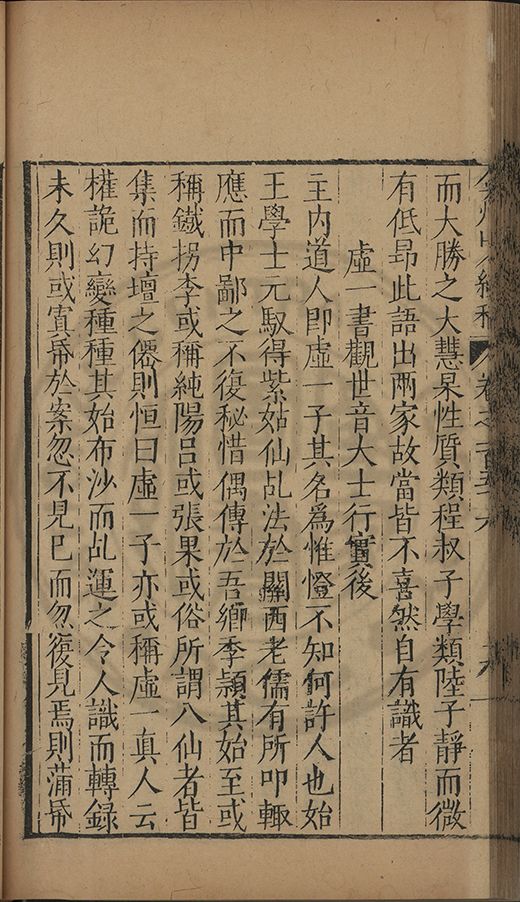 而大勝之大慧杲性質類程叔子學類陸子靜而微
有低昻此語出兩家故當皆不喜然自有識者
虛一書觀世音大士行實後
主內道人即虛一子其名爲惟㷳不知何許人也始
王學士元馭得紫姑仙乩法於關西老儒有所叩輙
應而中鄙之不復秘惜偶傳於吾鄉季頴其始至或
稱鐡拐李或稱純陽吕或張果或俗所謂八仙者皆
集而持壇之僊則恒曰虛一子亦或稱虛一真人云
權詭幻變種種其始布沙而乩運之令人識而轉錄
未久則或寘帋於案忽不見巳而忽復見焉則蒲帋
卷之一百五十六